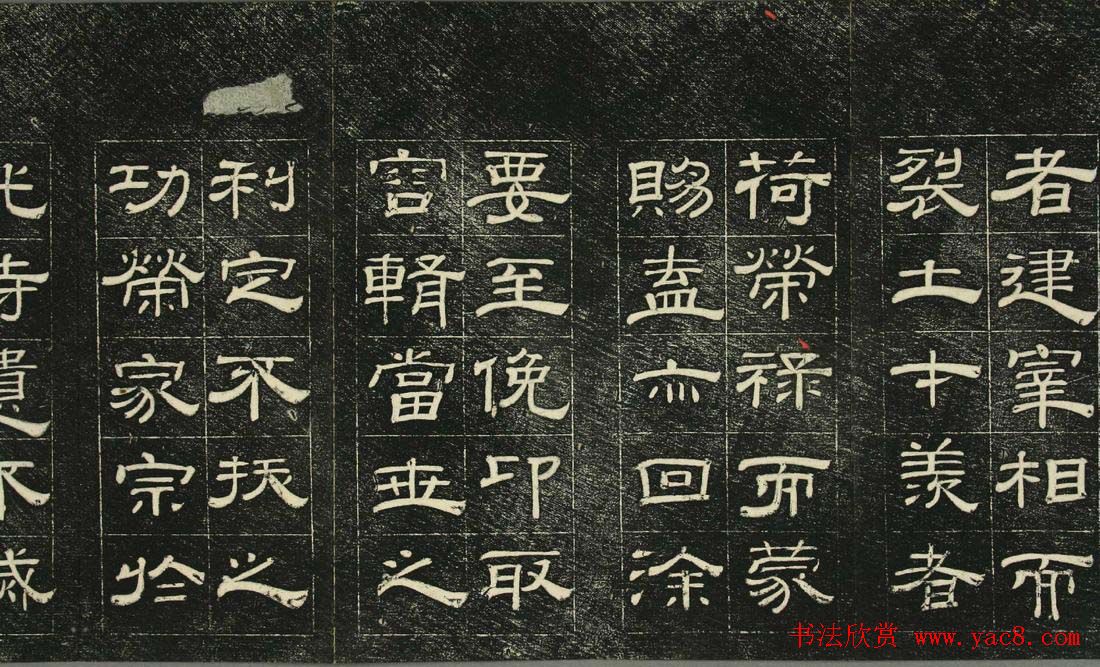 者建宰相而
裂土才羨者
荷榮禄而蒙
賜盍亦回涂
要至俛卬取
容輯當世之
利定不拔之
功榮家宗於
书法欣赏 www.yac8.com